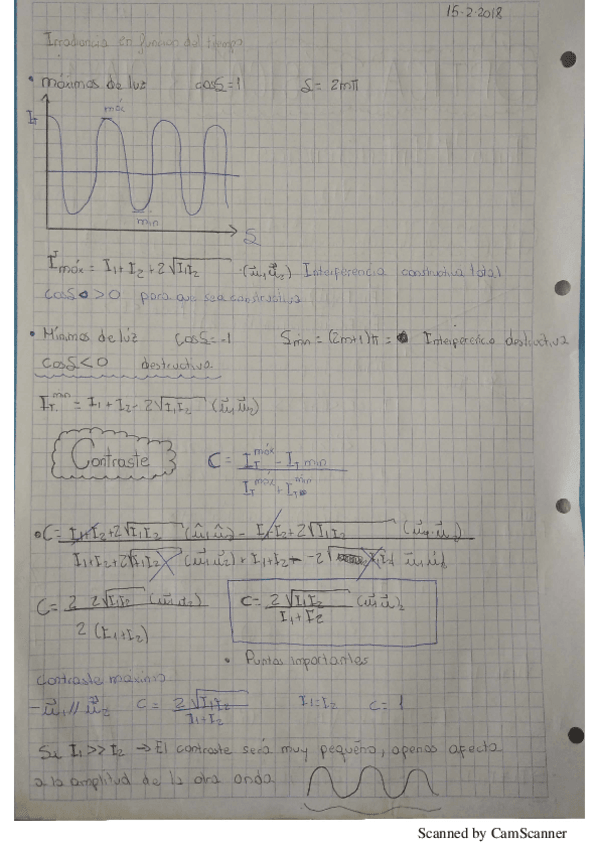 15-2-2018
Irradiancia en función del tiempo
• máximos de luz cosδ=1 δ= 2mπ
I_T
máx
mín
δ
I_T^máx = I₁+I₂+2√I₁I₂ (u⃗₁,u⃗₂) Interferencia constructiva total
cosδ>0 para que sea constructiva
• Mínimos de luz cosδ=-1 δmin = (2m+1)π = Interferencia destructiva
cosδ<0 destructiva
I_T^min = I₁+I₂-2√I₁I₂ (u⃗₁u⃗₂)
Contraste C = I_T^máx - I_T min
I_T^máx + I_T^min
• C= I₁+I₂+2√I₁I₂ (û₁û₂) - I₁+I₂+2√I₁I₂ (u⃗₁·u⃗₂)
I₁+I₂+2√I₁I₂ (u⃗₁u⃗₂)+I₁+I₂ -2√ I₁I₂ u⃗₁u⃗₂
C= 2 2√I₁I₂ (u⃗₁u⃗₂) C= 2√I₁I₂ (u⃗₁u⃗₂)
2 (I₁+I₂) I₁+I₂
• Puntos importantes
Contraste maximo
-u⃗₁//u⃗₂ C= 2√I₁I₂ I₁=I₂ C=1
I₁+I₂
Si I₁>>I₂ → El contraste será muy pequeño, apenas afecta
a la amplitud de la otra onda
Scanned by CamScanner